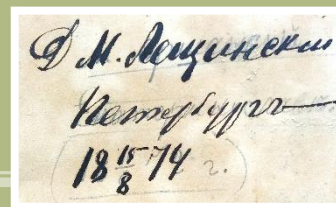 Д М. Лещинский
Петербургъ
18 15/8 74 г.